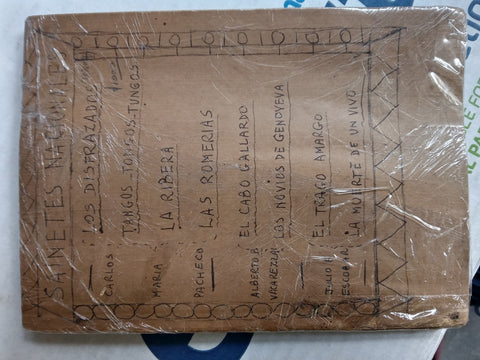 SAINETES NACIONALES
CARLOS
MARIA
PACHECO
LOS DISFRAZADOS
TANGOS-TONGOS-TUNGOS
LA RIBERA
LAS ROMERIAS
ALBERTO
VACAREZZA
EL CABO GALLARDO
LOS NOVIOS DE GENOVEVA
JULIO
ESCOBAR
EL TRAGO AMARGO
LA MUERTE DE UN VIVO